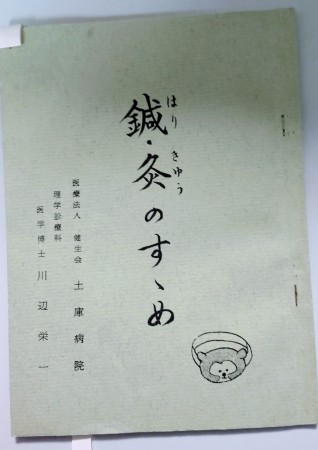 はり きゅう
鍼・灸のすゝめ
医療法人 健生会 土庫病院
理学診療科
医学博士 川辺栄一